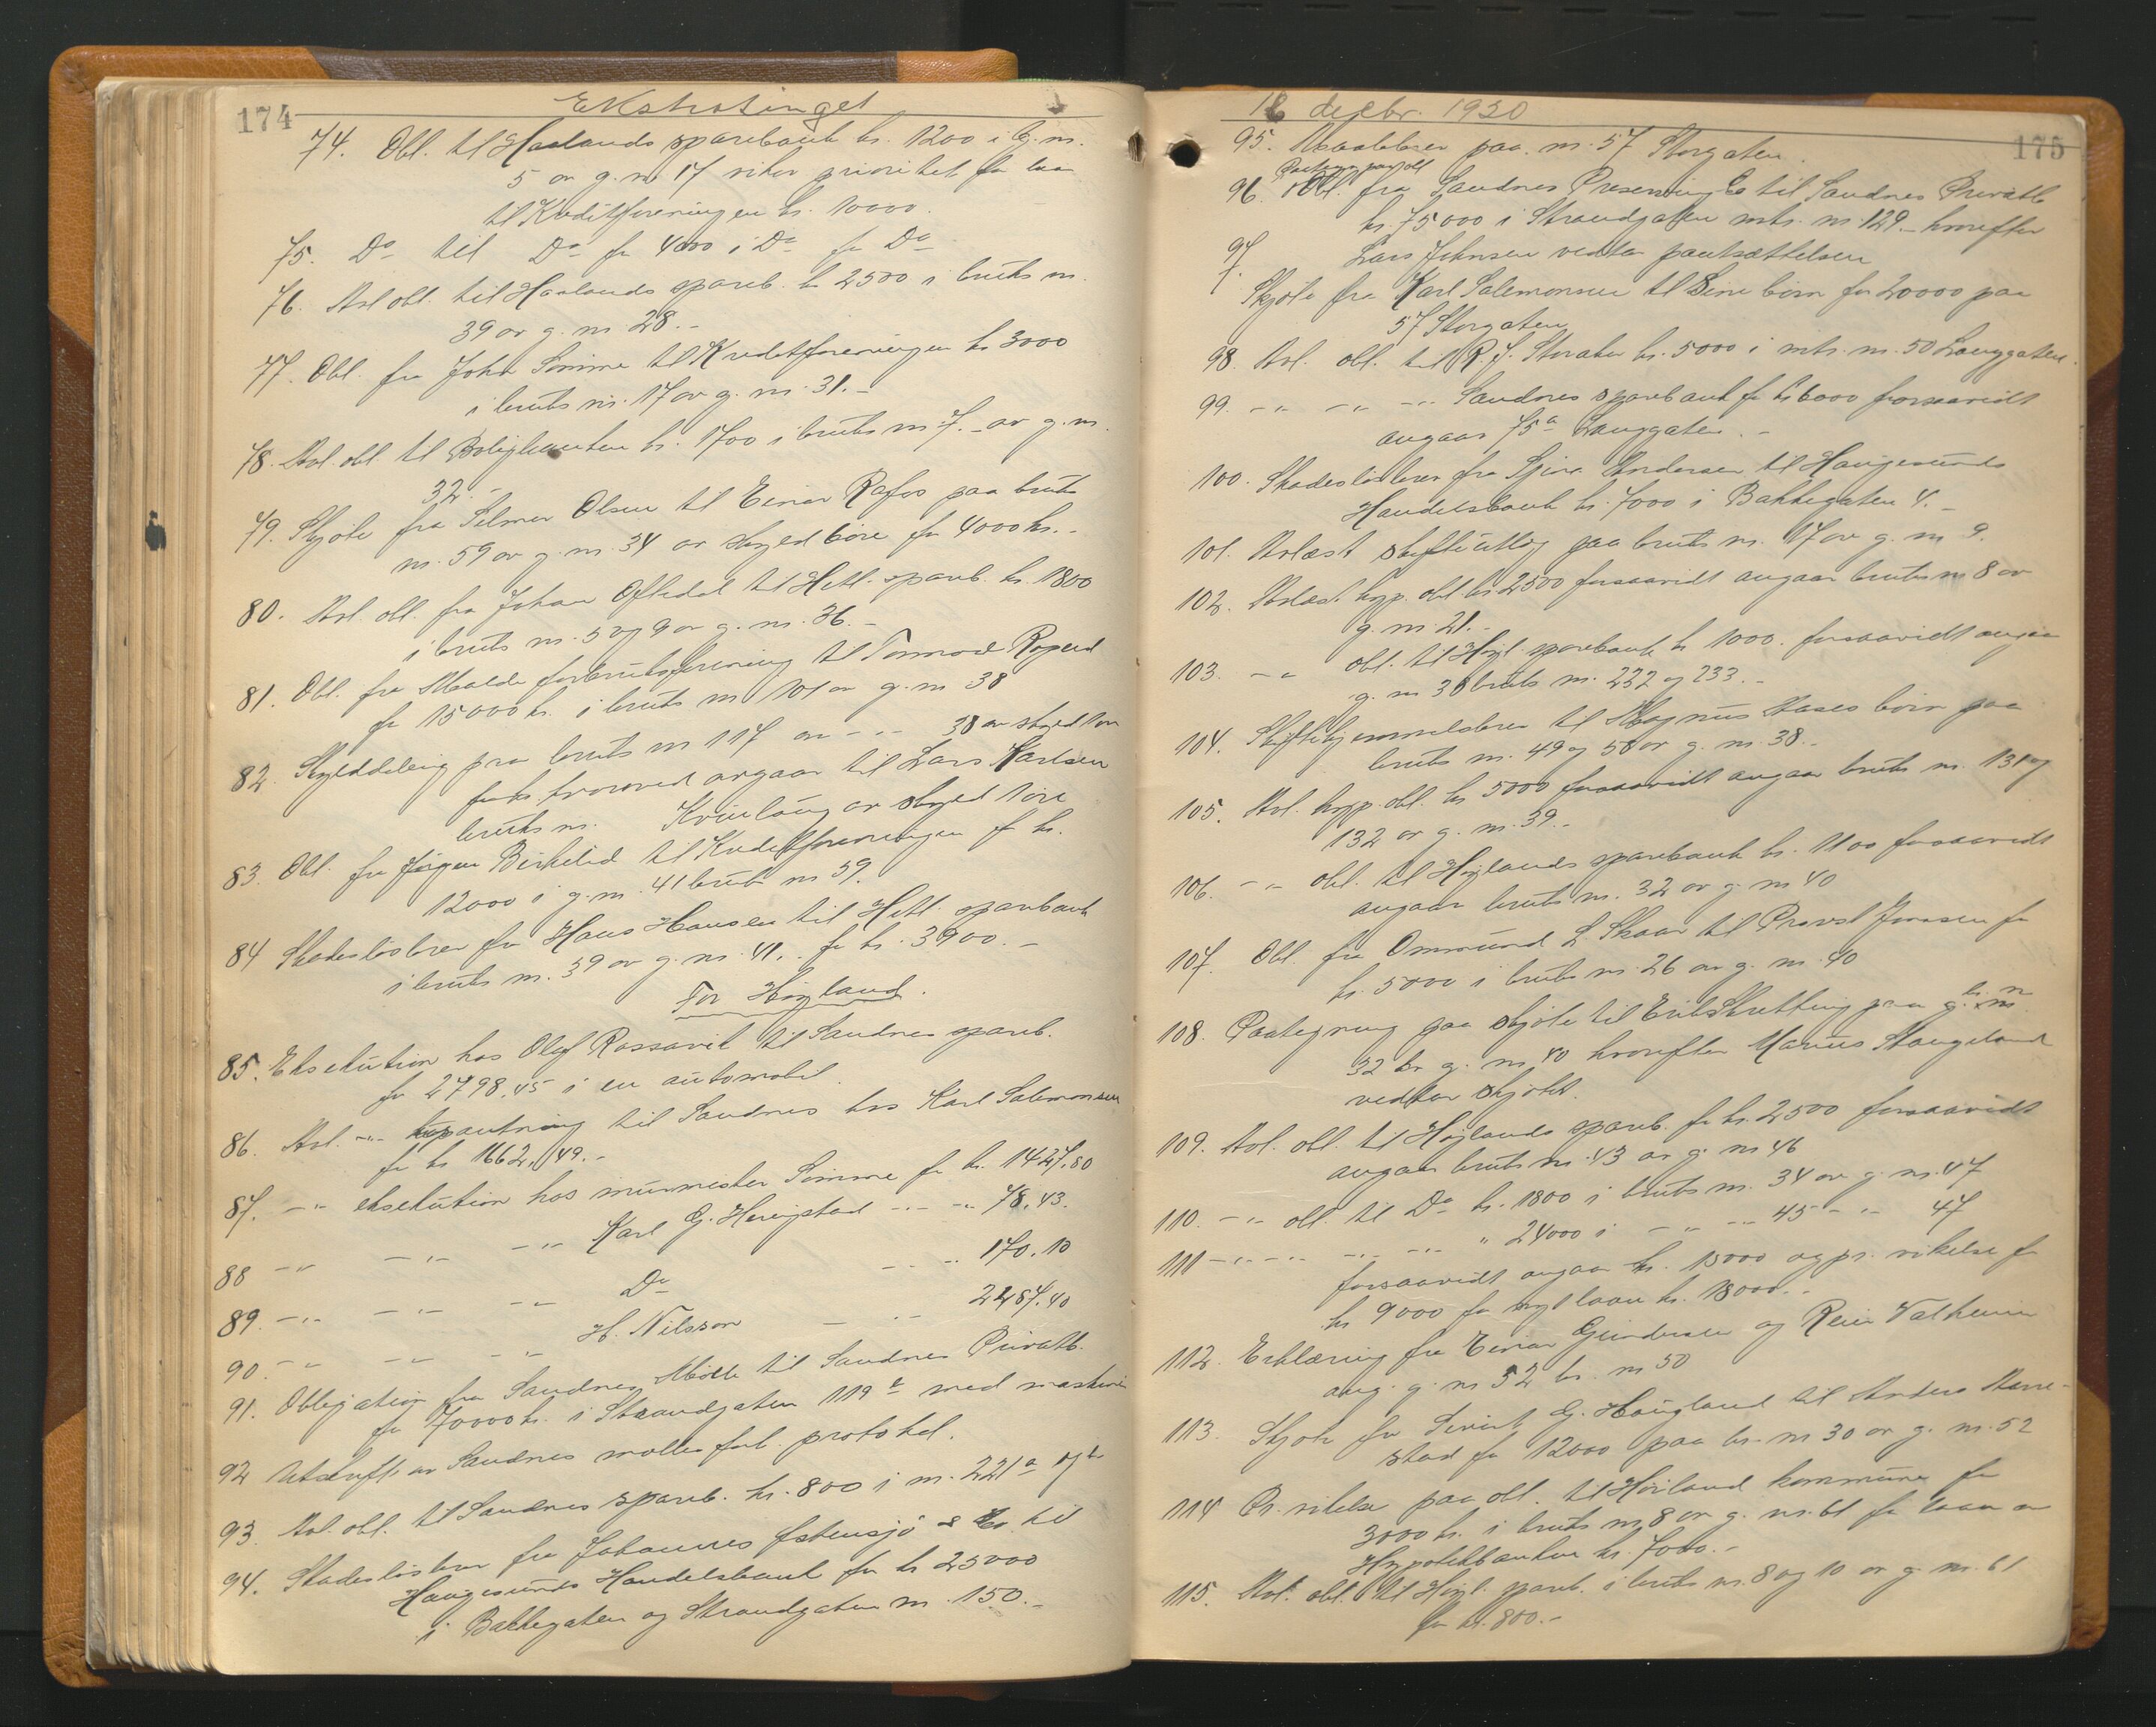 174
Ekstratinget
74. Obl. til Haalands sparebank kr. 1200 i b. nr.
5 av g. nr 17 viker prioritet for laan
til Kreditforeningen kr. 10000.
75. Do til Do for 4000 i Do for Do
76. Avl obl. til Haalands spareb. kr 2500 i bruks nr.
39 av g. nr 28.-
77. Obl. fra John Somme til Kreditforeningen kr 3000
i bruks nr. 17 av g. nr. 31.-
78. Avl. obl. til Boligbanken kr. 1700 i bruks nr 7.- av g. nr.
32.-
79. Skjøte fra Selmer Olsen til Einar Rafos paa bruks
nr. 59 av g. nr. 34 av skyld 6øre for 4000 kr.-
80. Avl. obl. fra Johan Oftedal til Hetl. spareb. kr. 1800
i bruks nr. 5 og 9 av g. nr. 36.-
81. Obl. fra Malde forbruksforening til Tormod
for 15000 kr. i bruks nr 101 av g. nr 38
82. Skylddeling paa bruks nr 117 av -"- 38 av skyld
hvorved avgaar til Lars Karlsen
bruks nr. av skyld 1 øre
83. Obl. fra Jørgen Birkelid til Kreditforeningen for kr.
12000 i g. nr. 41 bruks nr 59.
84 Skadesløsbrev fra Hans Hansen til Hetl. sparebank
i bruks nr. 39 av g. nr. 41.. for kr. 3900.-
For Høyland.
85. Eksekution hos Olaf Rossavik til Sandnes spareb.
for 2798.45 i en automobil.
86. Avl. -"- utpantning til Sandnes hos Karl Salemonsen
for kr 1662.49.-
87. -"- eksekution hos murmester Somme for kr. 1427.80
88 -"- -"- -"- Karl G. Havigstad -"- -"- 78.43.
89. -"- -"- -"- Do -"- 170.10
90 -"- -"- -"- H. Nilsson - -"- 2287.40
91. Obligation fra Sandnes Mølle til Sandnes Privatb.
for 70000 kr. i Strandgaten 119 b med maskiner
92 Utskrift av Sandnes mølles forh. protokol.
93. Avl. obl. til Sandnes spareb. kr. 800 i nr. 221 a og b
94. Skadesløsbrev fra Johannes Østensjö & Co til
Haugesunds Handelsbank for kr 25000
i Bakkegaten og Strandgaten nr. 150.-
16 decbr. 1920
175
95. Maalebrev paa nr. 57 Storgaten.
Paategn. paa obl
96. Obl. fra Sandnes Presenning Co til Sandnes Privatb
kr. 75000 i Strandgaten mtr. nr 129.- hvorefter
Lars Johnsen vedtar pantsættelsen
97.
Skjøte fra Karl Salemonsen til Sine børn for 20000 paa
57 Storgaten
98. Avl. obl. til R. J. kr. 5000 i mtr. nr. 50 Langgaten.
99. -"- -"- -"- Sandnes sparebank for kr 6000 forsaavidt
angaar 75 a Langgaten.-
100. Skadesløsbrev fra Andersen til Haugesunds
Handelsbank kr. 7000 i Bakkegaten 4.-
101. Avlæst skifteutlæg paa bruks nr. 17 av g. nr 9.
102. Avlæst hyp. obl kr 2500 forsaavidt angaar bruks nr 8 av
g. nr. 21.-
103. -"- obl. til Høyl. sparebank kr 1000. forsaavidt angaar
g. nr 38 bruks nr. 232 og 233.-
104. Skiftehjemmelsbrev til Magnus Aases børn paa
bruks nr. 49 og 58 av g. nr. 38.-
105. Avl. hyp. obl. kr 5000 forsaavidt angaar bruks nr. 131 og
132 av g. nr. 39.-
106. -"- obl. til Høylands sparebank kr. 1100 forsaavidt
angaar bruks nr. 32 av g. nr 40
107. Obl. fra Ommund L. Skaar til Provst Jonassen for
kr. 5000 i bruks nr. 26 av g. nr. 40
108. Paategning paa skjøte til Erik Skretting paa g. br. nr
32 av g. nr 40 hvorefter Marius Stangeland
vedtar skjøtet.
109. Avl. obl. til Høylands spareb. for kr. 2500 forsaavidt
angaar bruks nr. 43 av g. nr 46
110. -"- obl. til Do kr. 1800 i bruks nr. 34 av g. nr. 47
111 -"- -"- -"- -"- " 24000 i -"- -"- 45 -"- 47
forsaavidt angaar kr. 15000 og pr. vikelse for
kr 9000 for nyt laan kr. 18000.-
112. Erklæring fra Einar Gundersen og Rein Valheim
ang. g. nr 52 br. nr 50
113. Skjøte fra Sivert G. Haugland til Anders Aarre-
stad for 12000 paa br. nr 30 av g. nr. 52
114 Pr. vikelse paa obl. til Høiland kommune for
3000 kr. i bruks nr 8 av g. nr. 61 for laan av
Hypotekbanken kr. 7000.-
115. Avl. obl. til Høyl. spareb. i bruks nr. 8 og 10 av g. nr. 61
for kr. 800.-